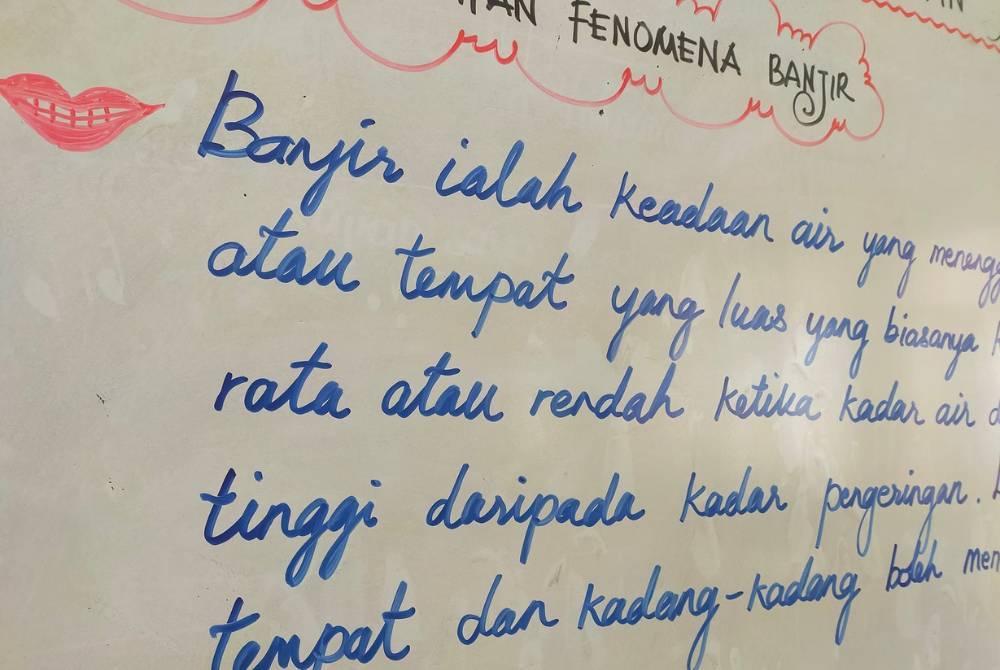 FENOMENA BANJIR
Banjir ialah keadaan air yang
atau tempat yang luas yang biasanya
rata atau rendah ketika kadar air
tinggi daripada kadar pengeringan.
tempat dan kadang-kadang boleh